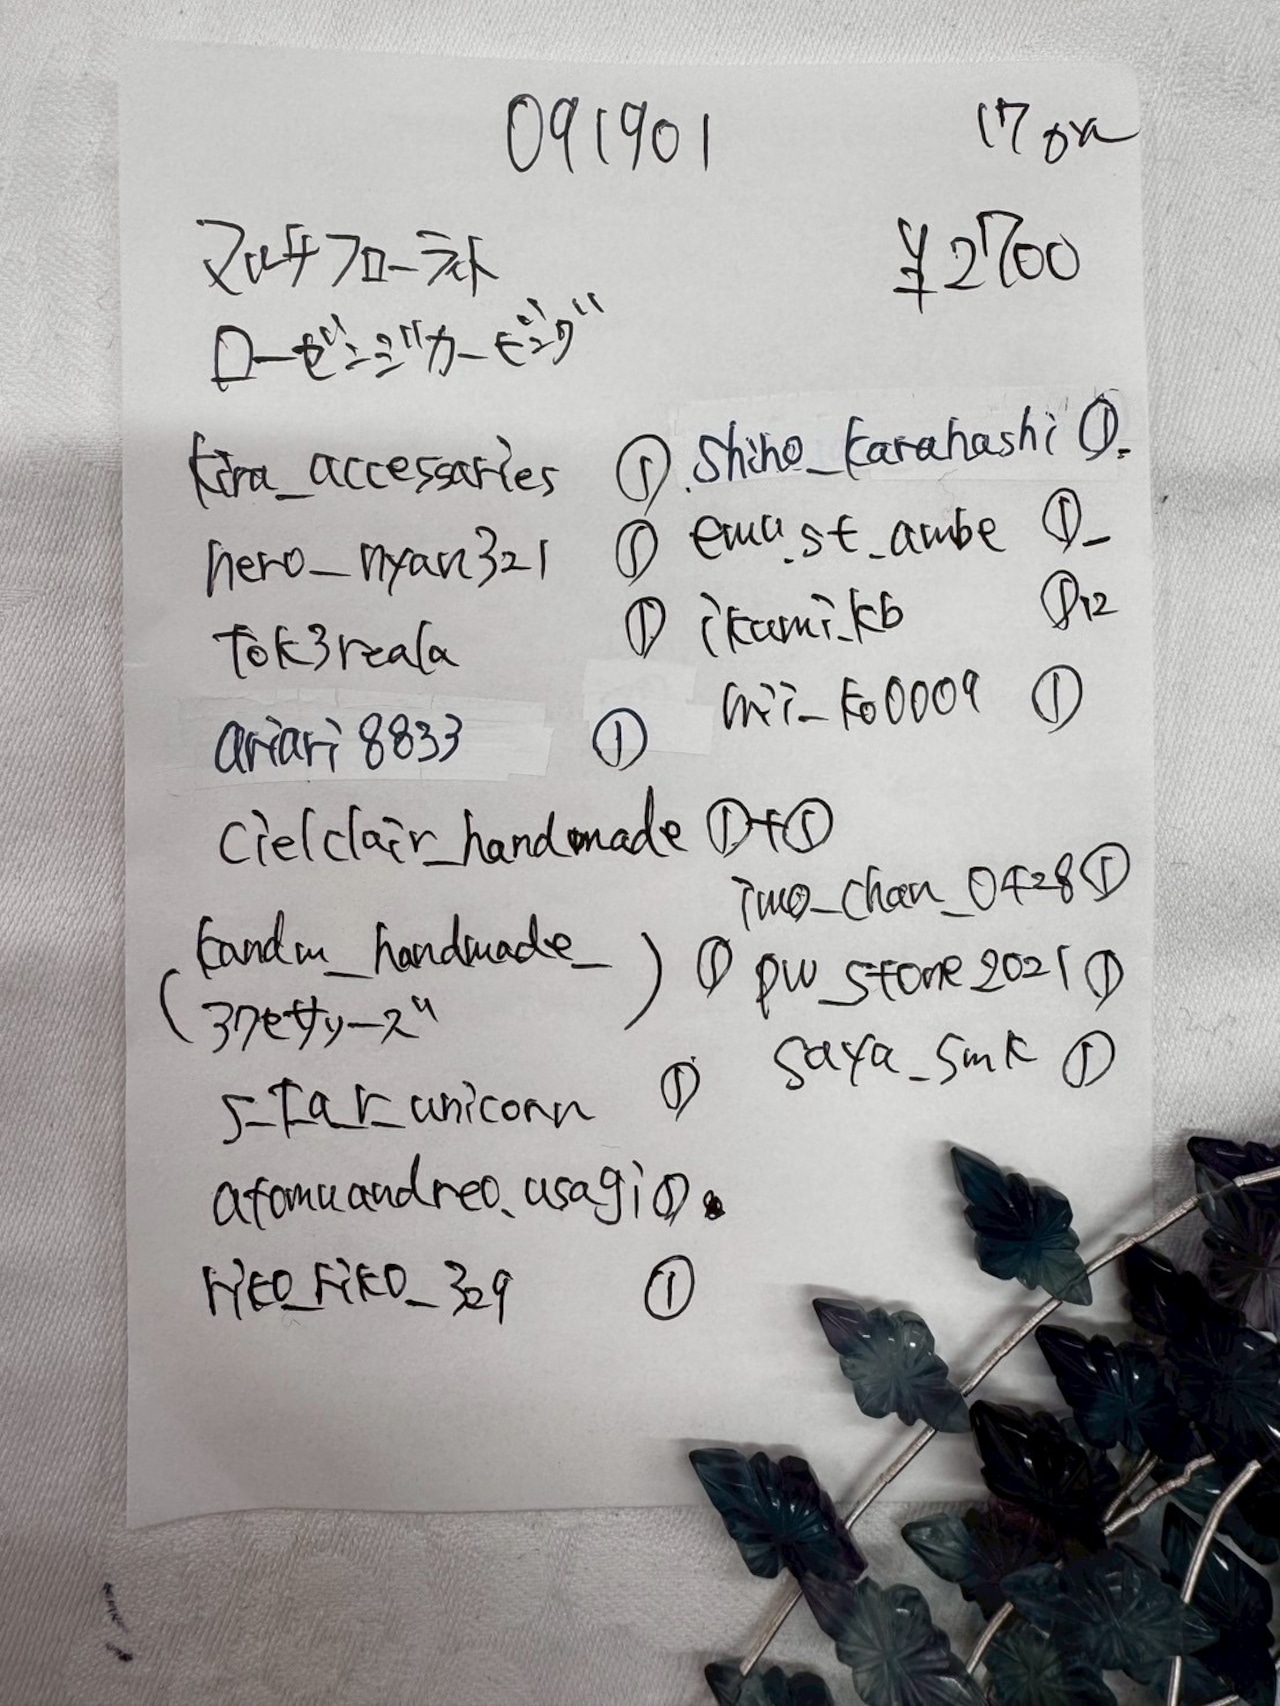 091901
17 on
マルチフローライト
¥2700
ローゼンジカービング
kira_accessaries ①
hero_nyan321 ①
tok3reala ①
ariari8833 ①
cielclair_handmade ①+①
(kandm_handmade_
37セサリーズ) ①
s_t_a_r_unicorn ①
atomuandreo.usagi ①
riko_riko_329 ①
.shiho_karahashi ①.
emu.st_ambe ①_
ikumi.kb ①12
mii_ko0009 ①
imo_chan_0428 ①
pw_stone2021 ①
saya_smk ①